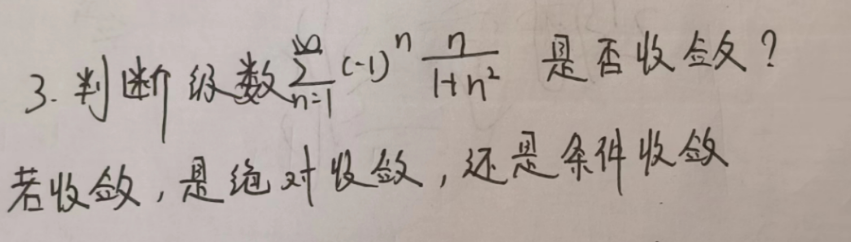 3. 判断级数 $\sum_{n=1}^{\infty} (-1)^n \frac{n}{1+n^2}$ 是否收敛?
若收敛,是绝对收敛,还是条件收敛